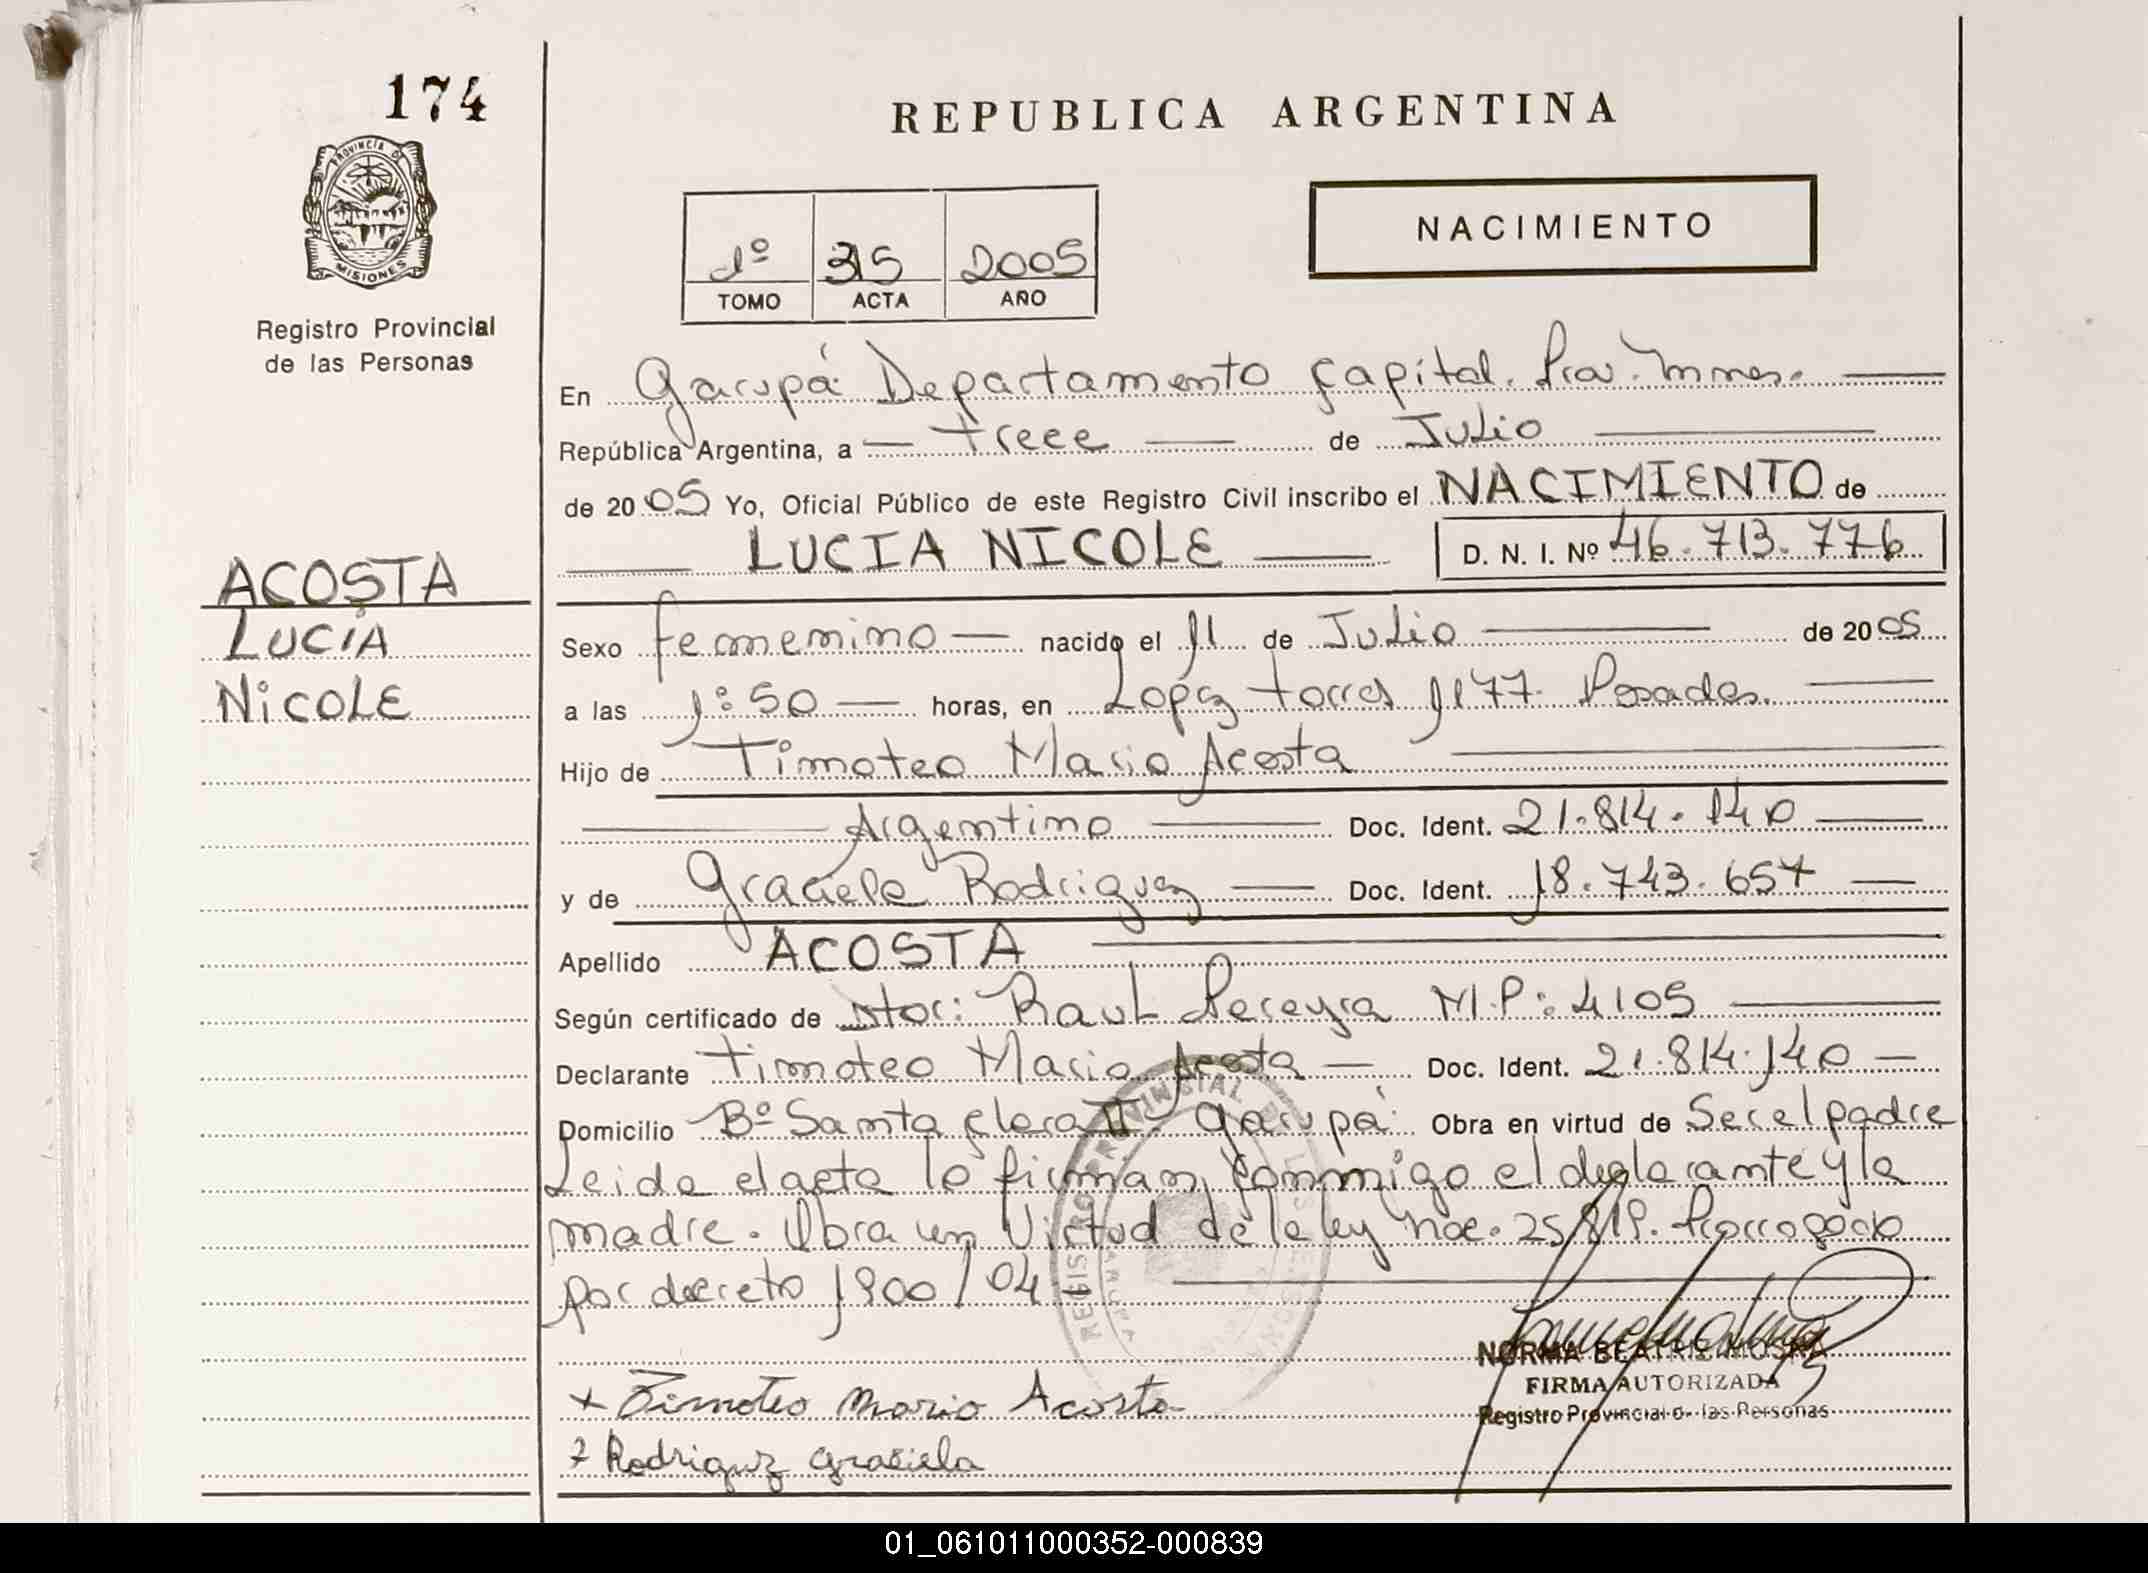 174
REPUBLICA ARGENTINA
PROVINCIA DE
MISIONES
NACIMIENTO
1º 315 2005
TOMO ACTA AÑO
Registro Provincial
de las Personas
En Garupá Departamento Capital. Prov. Mnes.
República Argentina, a trece de Julio
de 2005 Yo, Oficial Público de este Registro Civil inscribo el NACIMIENTO de
LUCIA NICOLE D. N. I. Nº 46.713.776
ACOSTA
LUCÍA
NICOLE
Sexo femenino nacido el 11 de Julio de 2005
a las 1:50 horas, en Lopez torres 1177. Posadas.
Hijo de Timoteo Mario Acosta
Argentino Doc. Ident. 21.814.140
y de Graciela Rodriguez Doc. Ident. 18.743.657
Apellido ACOSTA
Según certificado de Raul Pereyra M.P: 4105
Declarante Timoteo Mario Acosta Doc. Ident. 21.814.140
Domicilio Bº Santa Clara II Garupá Obra en virtud de Ser el padre
Leida el acta la firman conmigo el declarante y la
madre. Obra en Virtud de la ley nac. 25.819. Prorrogado
por decreto 1900/04
REGISTRO PROVINCIAL DE LAS PERSONAS
GARUPA
NORMA BEATRIZ
FIRMA AUTORIZADA
Registro Provincial de las Personas
+ Timoteo Mario Acosta
Rodriguez Graciela
01_061011000352-000839